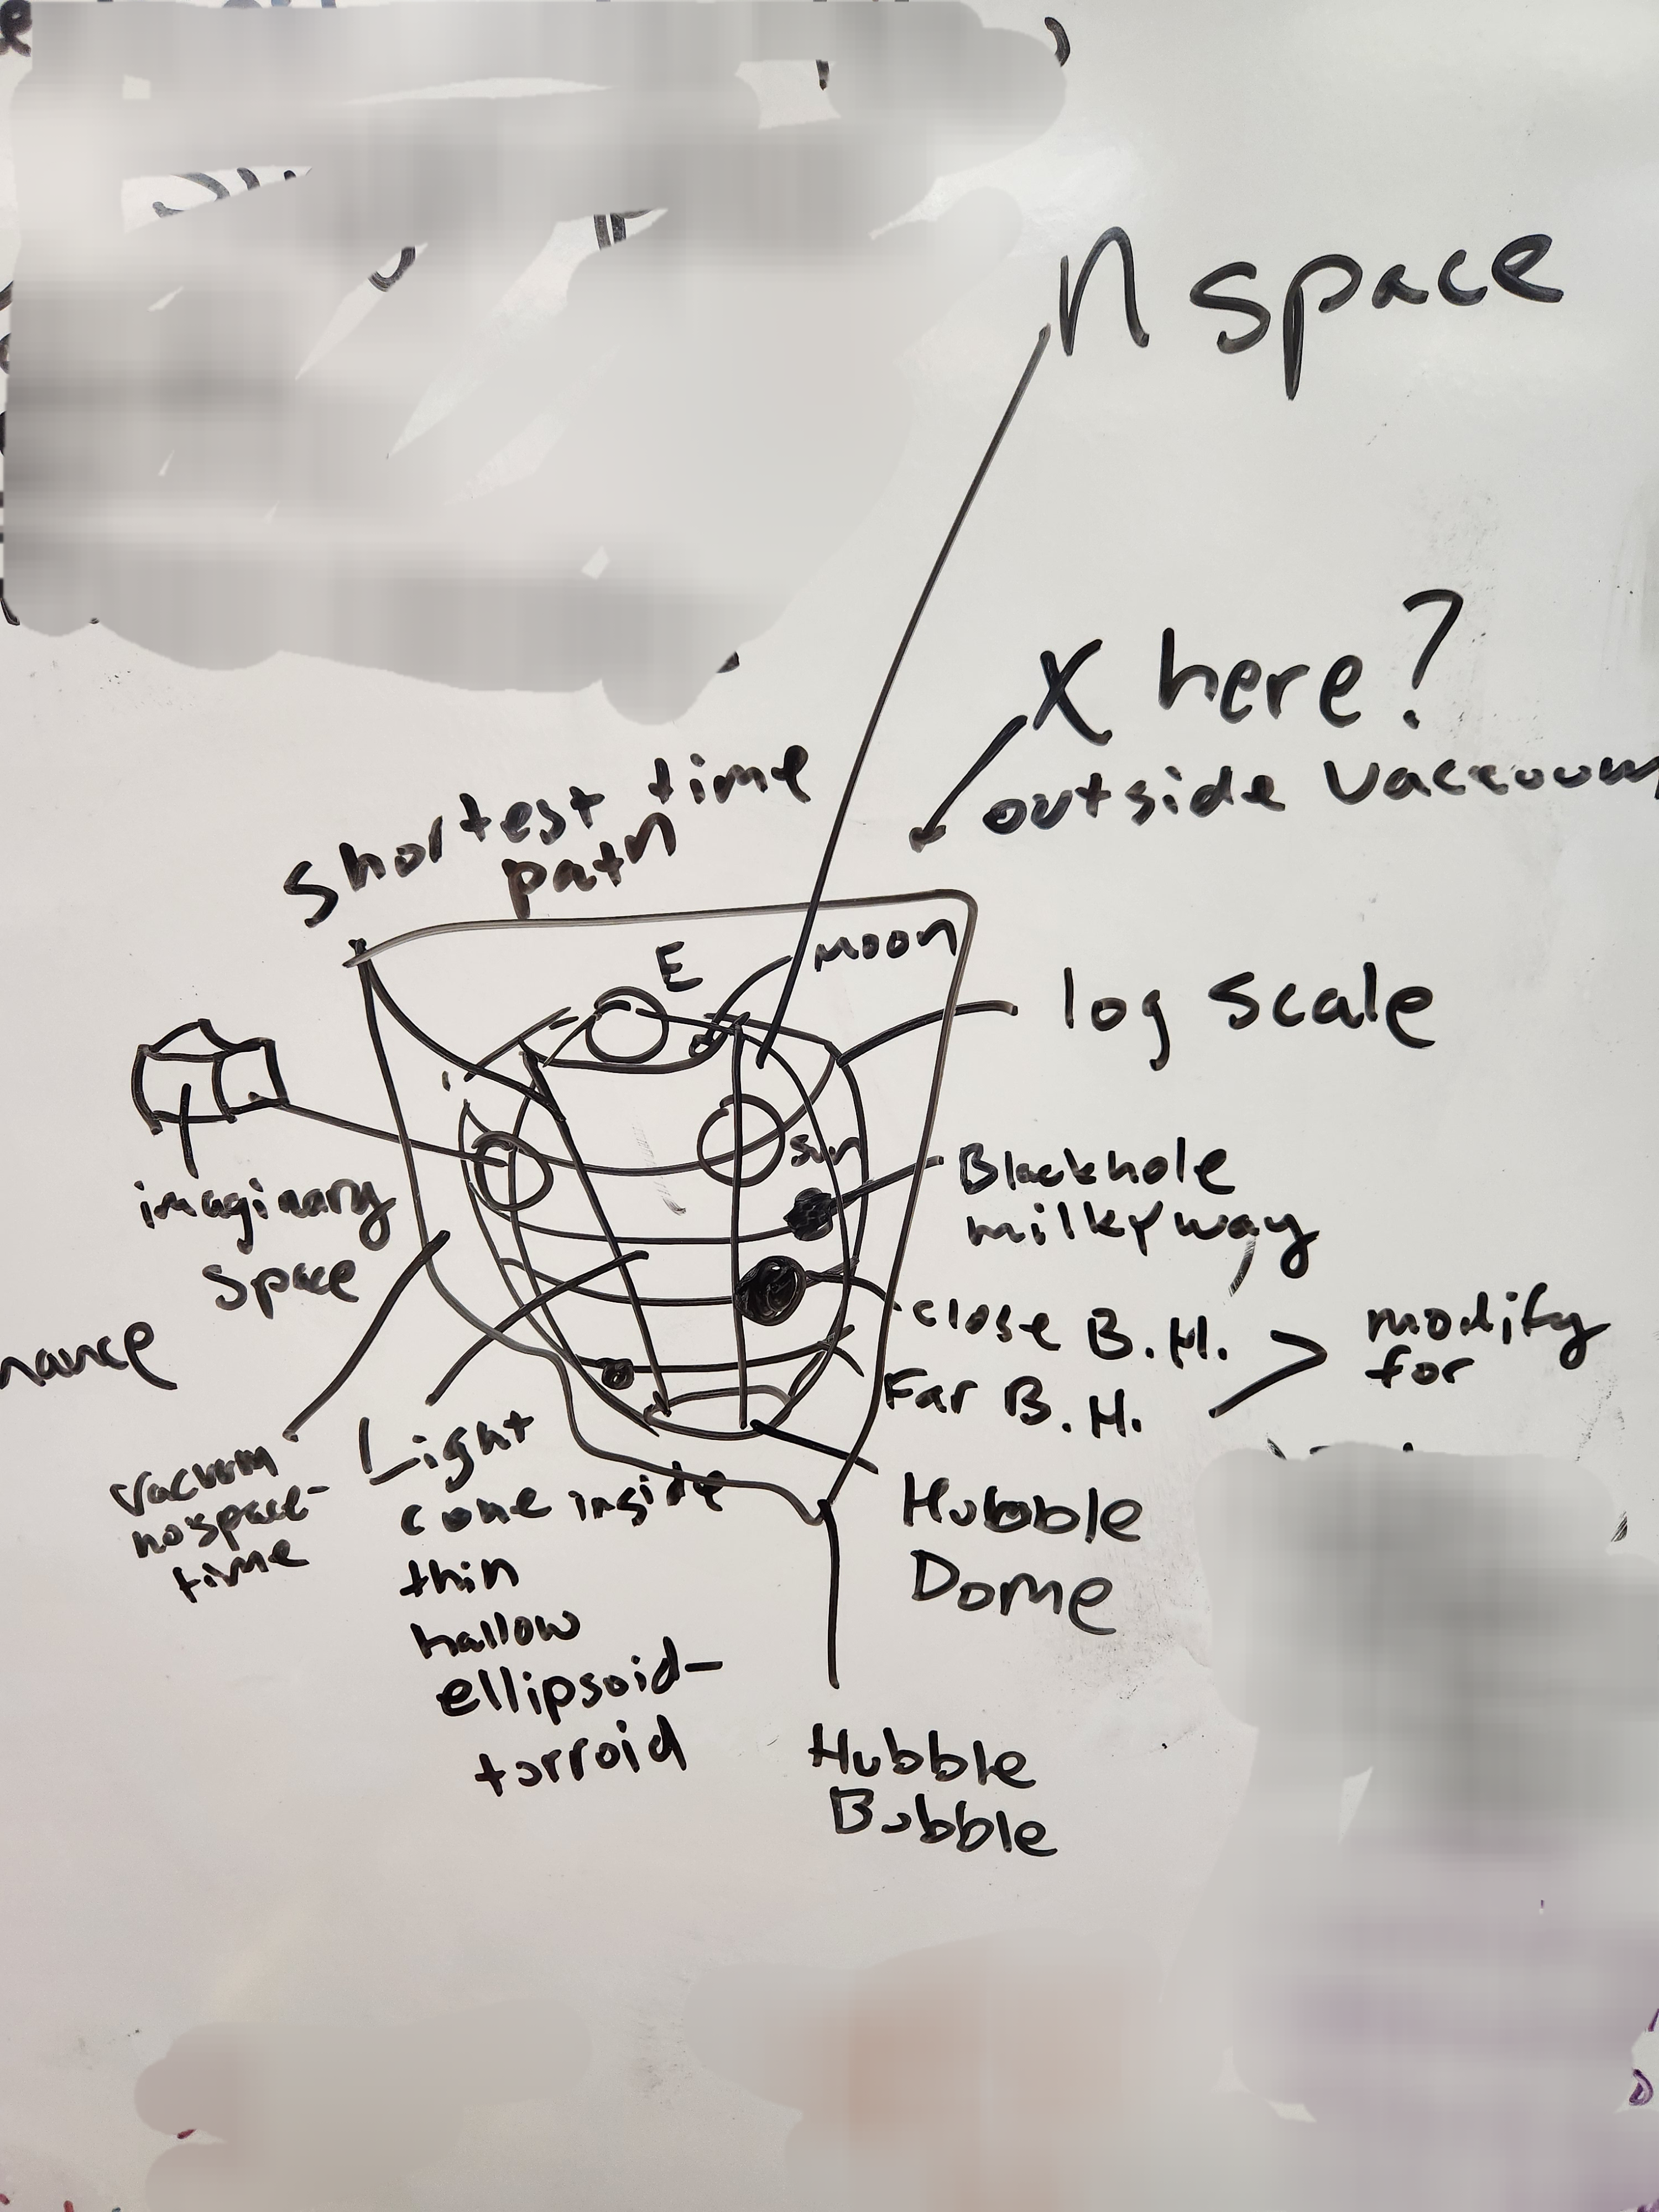 n space
X here?
outside Vaccouum
shortest time
path
E
moon
log scale
sun
Blackhole
milkyway
imaginary
space
close B.H.
Far B.H.
modify
for
nance
vacuum
no space-
time
Light
cone inside
thin
hallow
ellipsoid-
torroid
Hubble
Dome
Hubble
Bubble